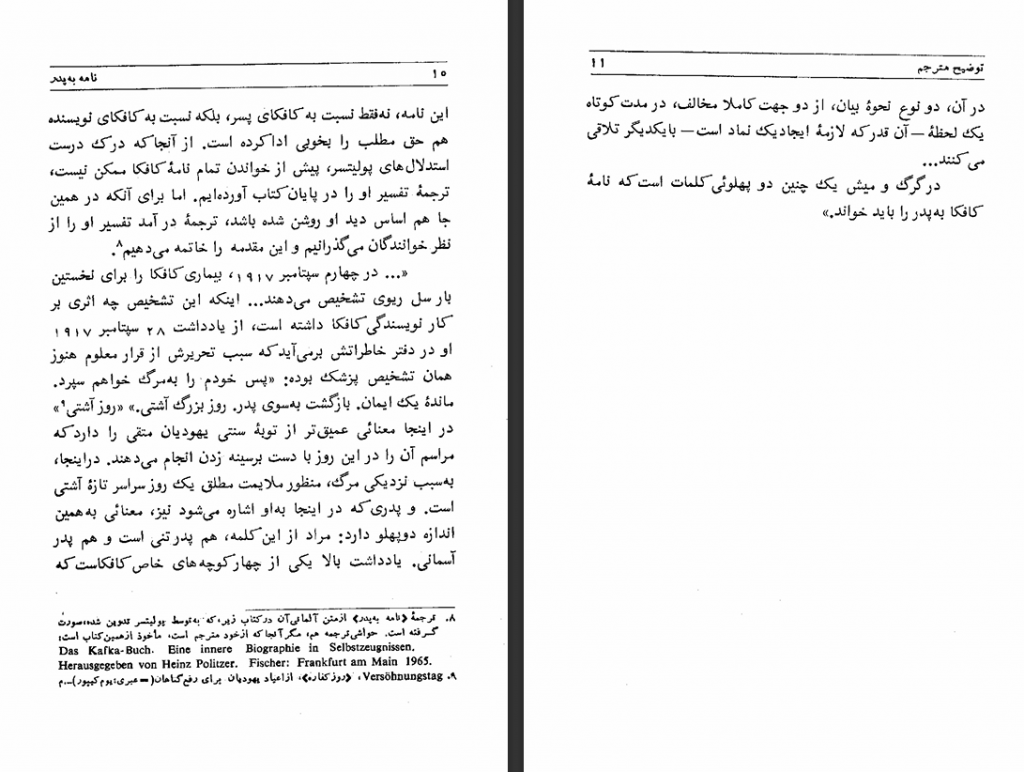 ۱۰ نامه به‌پدر
این نامه، نه‌فقط نسبت به کافکای پسر، بلکه نسبت به کافکای نویسنده
هم حق مطلب را بخوبی ادا کرده است. از آنجا که درک درست
استدلال‌های پولیتسر، پیش از خواندن تمام نامهٔ کافکا ممکن نیست،
ترجمهٔ تفسیر او را در پایان کتاب آورده‌ایم. اما برای آنکه در همین
جا هم اساس دید او روشن شده باشد، ترجمهٔ در آمد تفسیر او را از
نظر خوانندگان می‌گذرانیم و این مقدمه را خاتمه می‌دهیم۸.
«... در چهارم سپتامبر ۱۹۱۷، بیماری کافکا را برای نخستین
بار سل ریوی تشخیص می‌دهند... اینکه این تشخیص چه اثری بر
کار نویسندگی کافکا داشته است، از یادداشت ۲۸ سپتامبر ۱۹۱۷
او در دفتر خاطراتش برمی‌آید که سبب تحریرش از قرار معلوم هنوز
همان تشخیص پزشک بوده: «پس خودم را به‌مرگ خواهم سپرد.
ماندهٔ یک ایمان. بازگشت به‌سوی پدر. روز بزرگ آشتی.» «روز آشتی۹»
در اینجا معنائی عمیق‌تر از توبهٔ سنتی یهودیان متقی را دارد که
مراسم آن را در این روز با دست برسینه زدن انجام می‌دهند. دراینجا،
به‌سبب نزدیکی مرگ، منظور ملایمت مطلق یک روز سراسر تازهٔ آشتی
است. و پدری که در اینجا به‌او اشاره می‌شود نیز، معنائی به‌همین
اندازه دوپهلو دارد: مراد از این کلمه، هم پدر تنی است و هم پدر
آسمانی. یادداشت بالا یکی از چهارکوچه‌های خاص کافکاست که
۸. ترجمهٔ «نامه به‌پدر» ازمتن آلمانی‌آن درکتاب زیر، که به‌توسط پولیتسر تدوین شده، صورت
گرفته است. حواشی ترجمه هم، مگر آنجا که ازخود مترجم است، مأخوذ ازهمین کتاب است:
Das Kafka-Buch. Eine innere Biographie in Selbstzeugnissen.
Herausgegeben von Heinz Politzer. Fischer: Frankfurt am Main 1965.
۹. Versöhnungstag، «روز کفاره»، ازاعیاد یهودیان برای رفع گناهان (= عبری: یوم کیپور)-.م
توضیح مترجم ۱۱
در آن، دو نوع نحوهٔ بیان، از دو جهت کاملا مخالف، در مدت کوتاه
یک لحظهٔ — آن قدر که لازمهٔ ایجاد یک نماد است — بایکدیگر تلاقی
می‌کنند...
در گرگ و میش یک چنین دو پهلوئی کلمات است که نامهٔ
کافکا به‌پدر را باید خواند.»